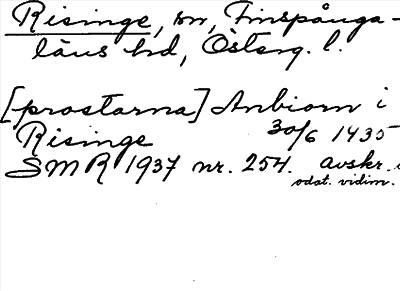 Risinge, sn, Finspånga-
läns hd, Österg. l.
[prostarna] Anbiorn i
Risinge 30/6 1435
SMR 1937 nr. 254. avskr. i
odat. vidim.